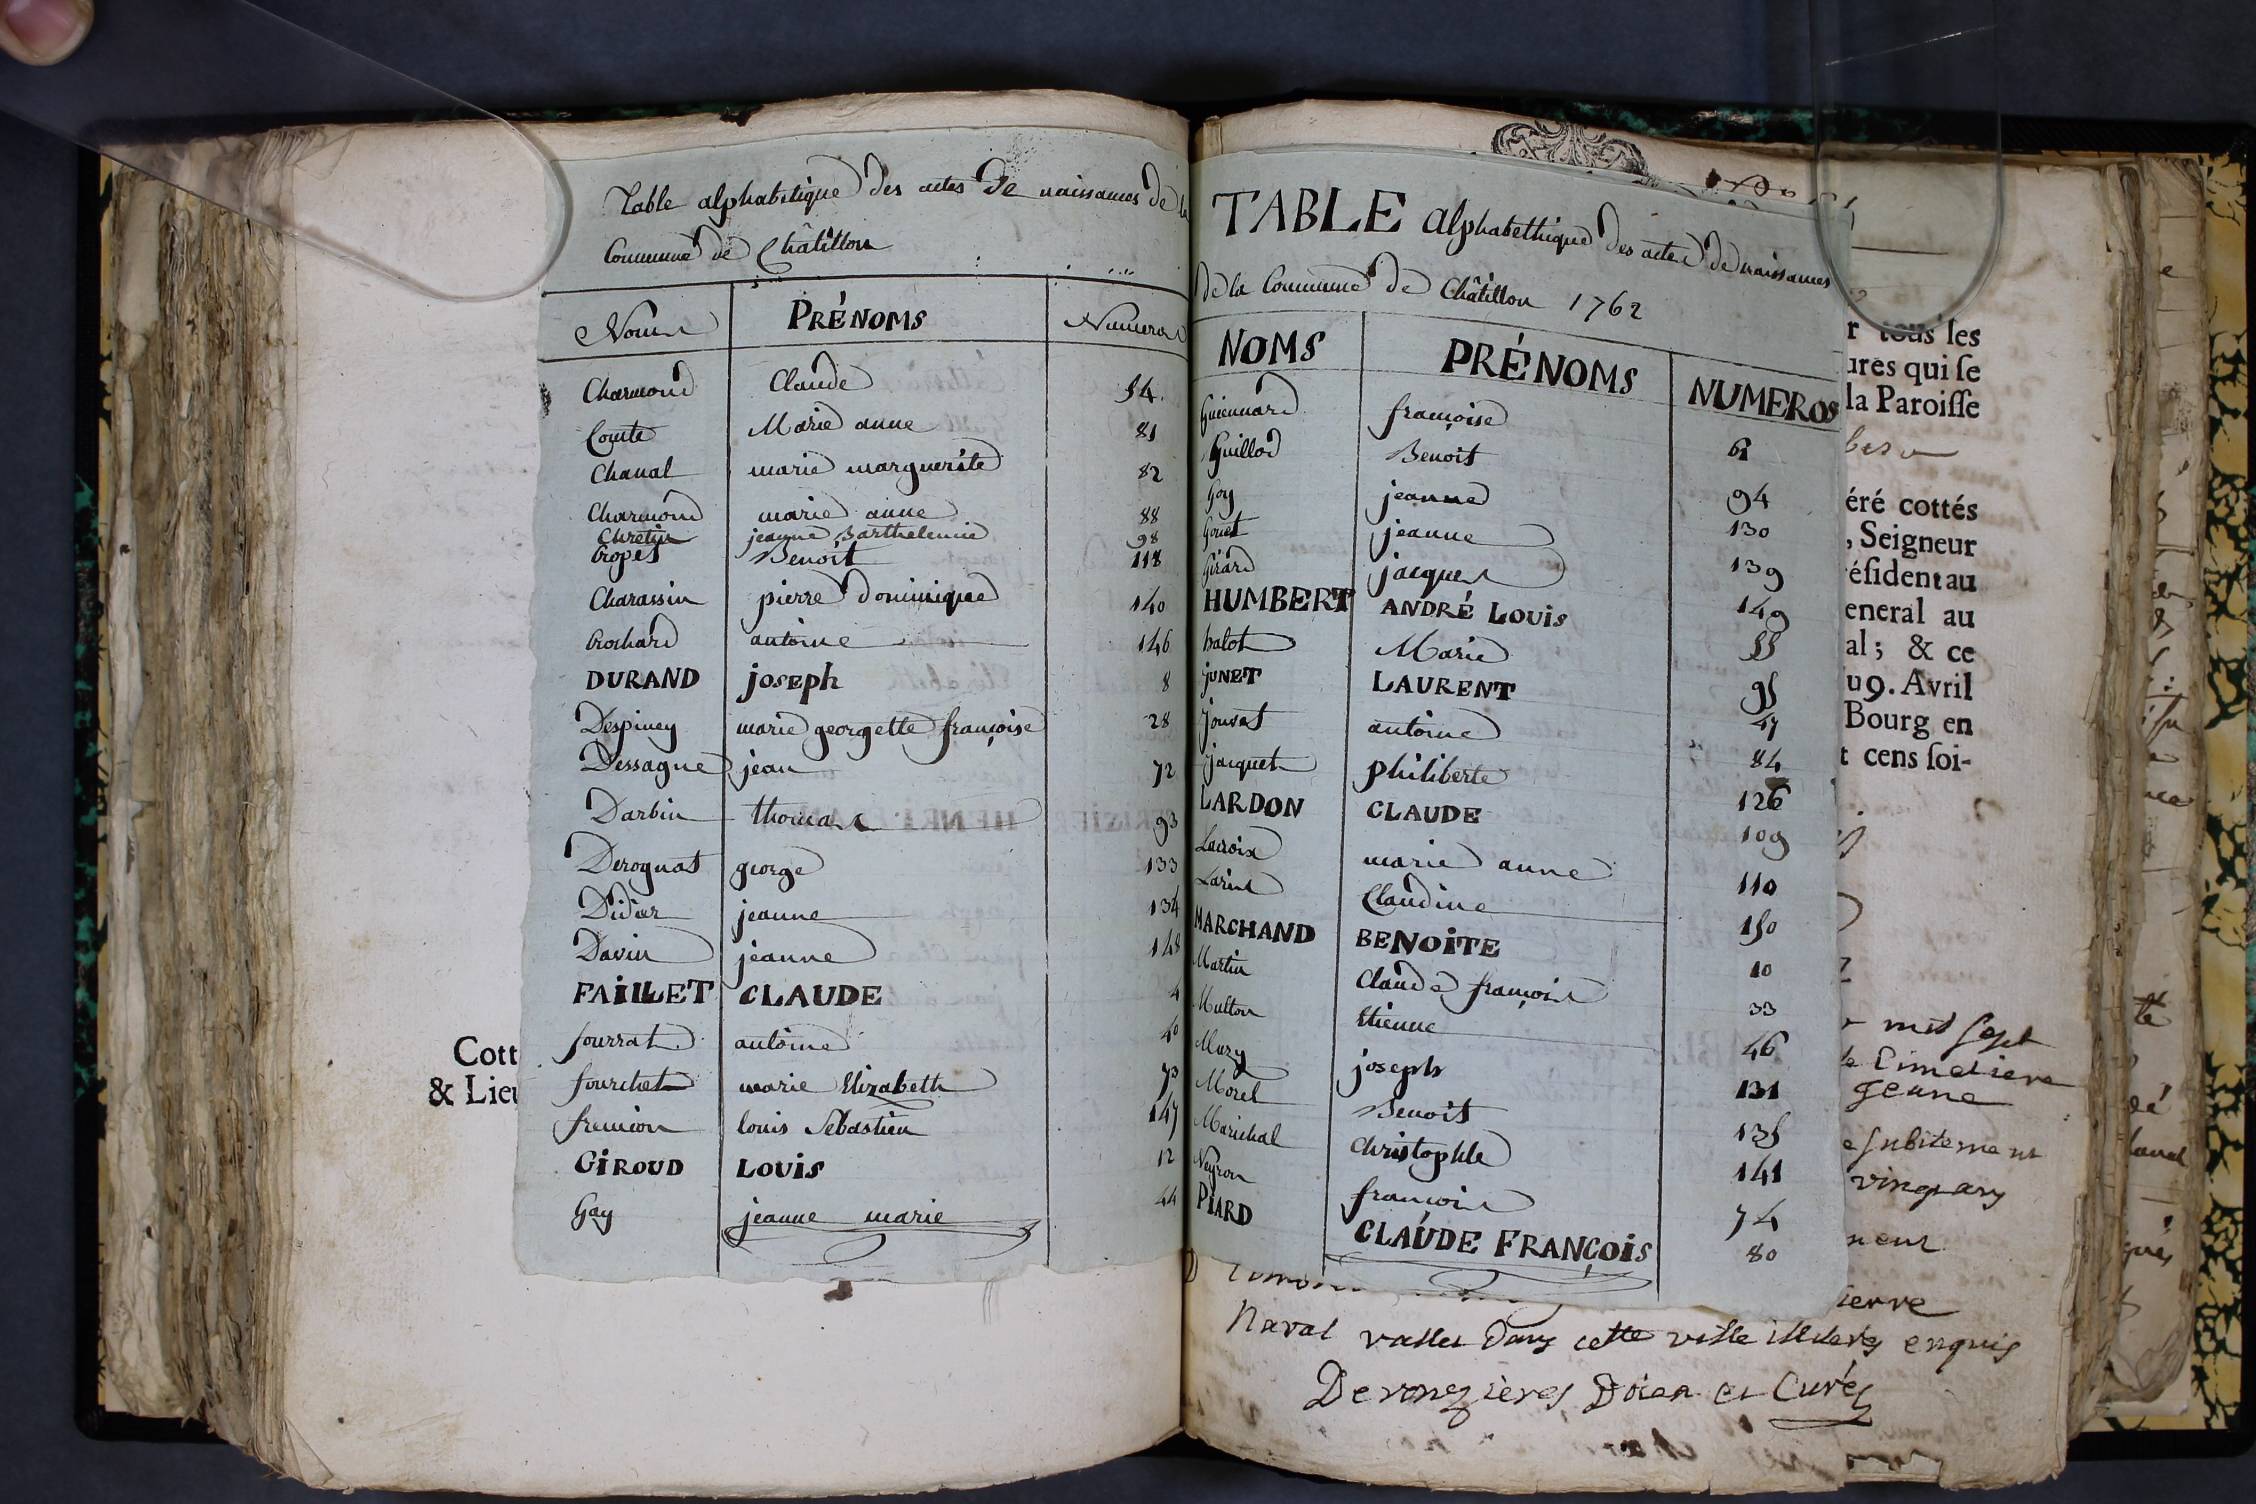 Table alphabetique des actes De naissances de la
Commune de Châtillon
Noms PRÉNOMS Numeros
Charmond Claude 54.
Comte Marie anne 81
Chanal marie marguerite 82
Charmond marie anne 88
Chretin jeanne Barthelemie 98
Cropet Benoit 118
Charassin pierre Dominique 140
Crochard antoine 146
DURAND joseph 8
Despiney marie georgette françoise 28
Dessagne jean 72
Darbin thomas 93
Derognat george 133
Didier jeanne 134
Davin jeanne 148
FAILLET CLAUDE 4
fourrat antoine 40
fourchet marie Elizabeth 73
fremion louis Sebastien 147
GIROUD LOUIS 12
Gay jeanne marie 44
Cott
& Lieu
TABLE Alphabethique des actes de naissances
de la Commune de Châtillon 1762
NOMS PRÉNOMS NUMEROS
Guiennard françoise 61
Guillod Benoit 94
Goy jeanne 130
Gonet jeanne 139
Girard jacques 149
HUMBERT ANDRÉ LOUIS 55
halot Marie 95
JUNET LAURENT 47
jouvat antoine 84
jacquet philiberte 126
LARDON CLAUDE 109
Lacroix marie anne 110
Larive Claudine 150
MARCHAND BENOITE 10
Martin Claude françois 33
Multon Etienne 46
Mury joseph 131
Morel Benoit 135
Marichal christophle 141
Neyron françois 74
PIARD CLAUDE FRANÇOIS 80
r tous les
ures qui se
la Paroisse
éré cottés
, Seigneur
ésident au
eneral au
al; & ce
u 9. Avril
Bourg en
t cens soi-
mil sept
le Cimetiere
jeune
subitement
vingt
ierre
Naval vallet Dans cette ville illiterés enquis
Deronzières Doien et Curé